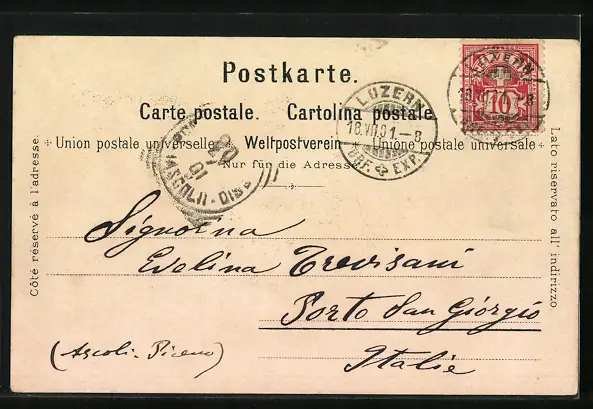 Postkarte.
HELVETIA
10
Carte postale. Cartolina postale
LUZERN
18.VII.01.-8
BRF. EXP.
Union postale universelle. Weltpostverein. Unione postale universale
Nur für die Adresse
20
01
Côté réservé à l'adresse.
Lato riservato all' indirizzo
Signorina
Evelina Trevisani
Porto San Giorgio
(Ascoli-Piceno)
Italie